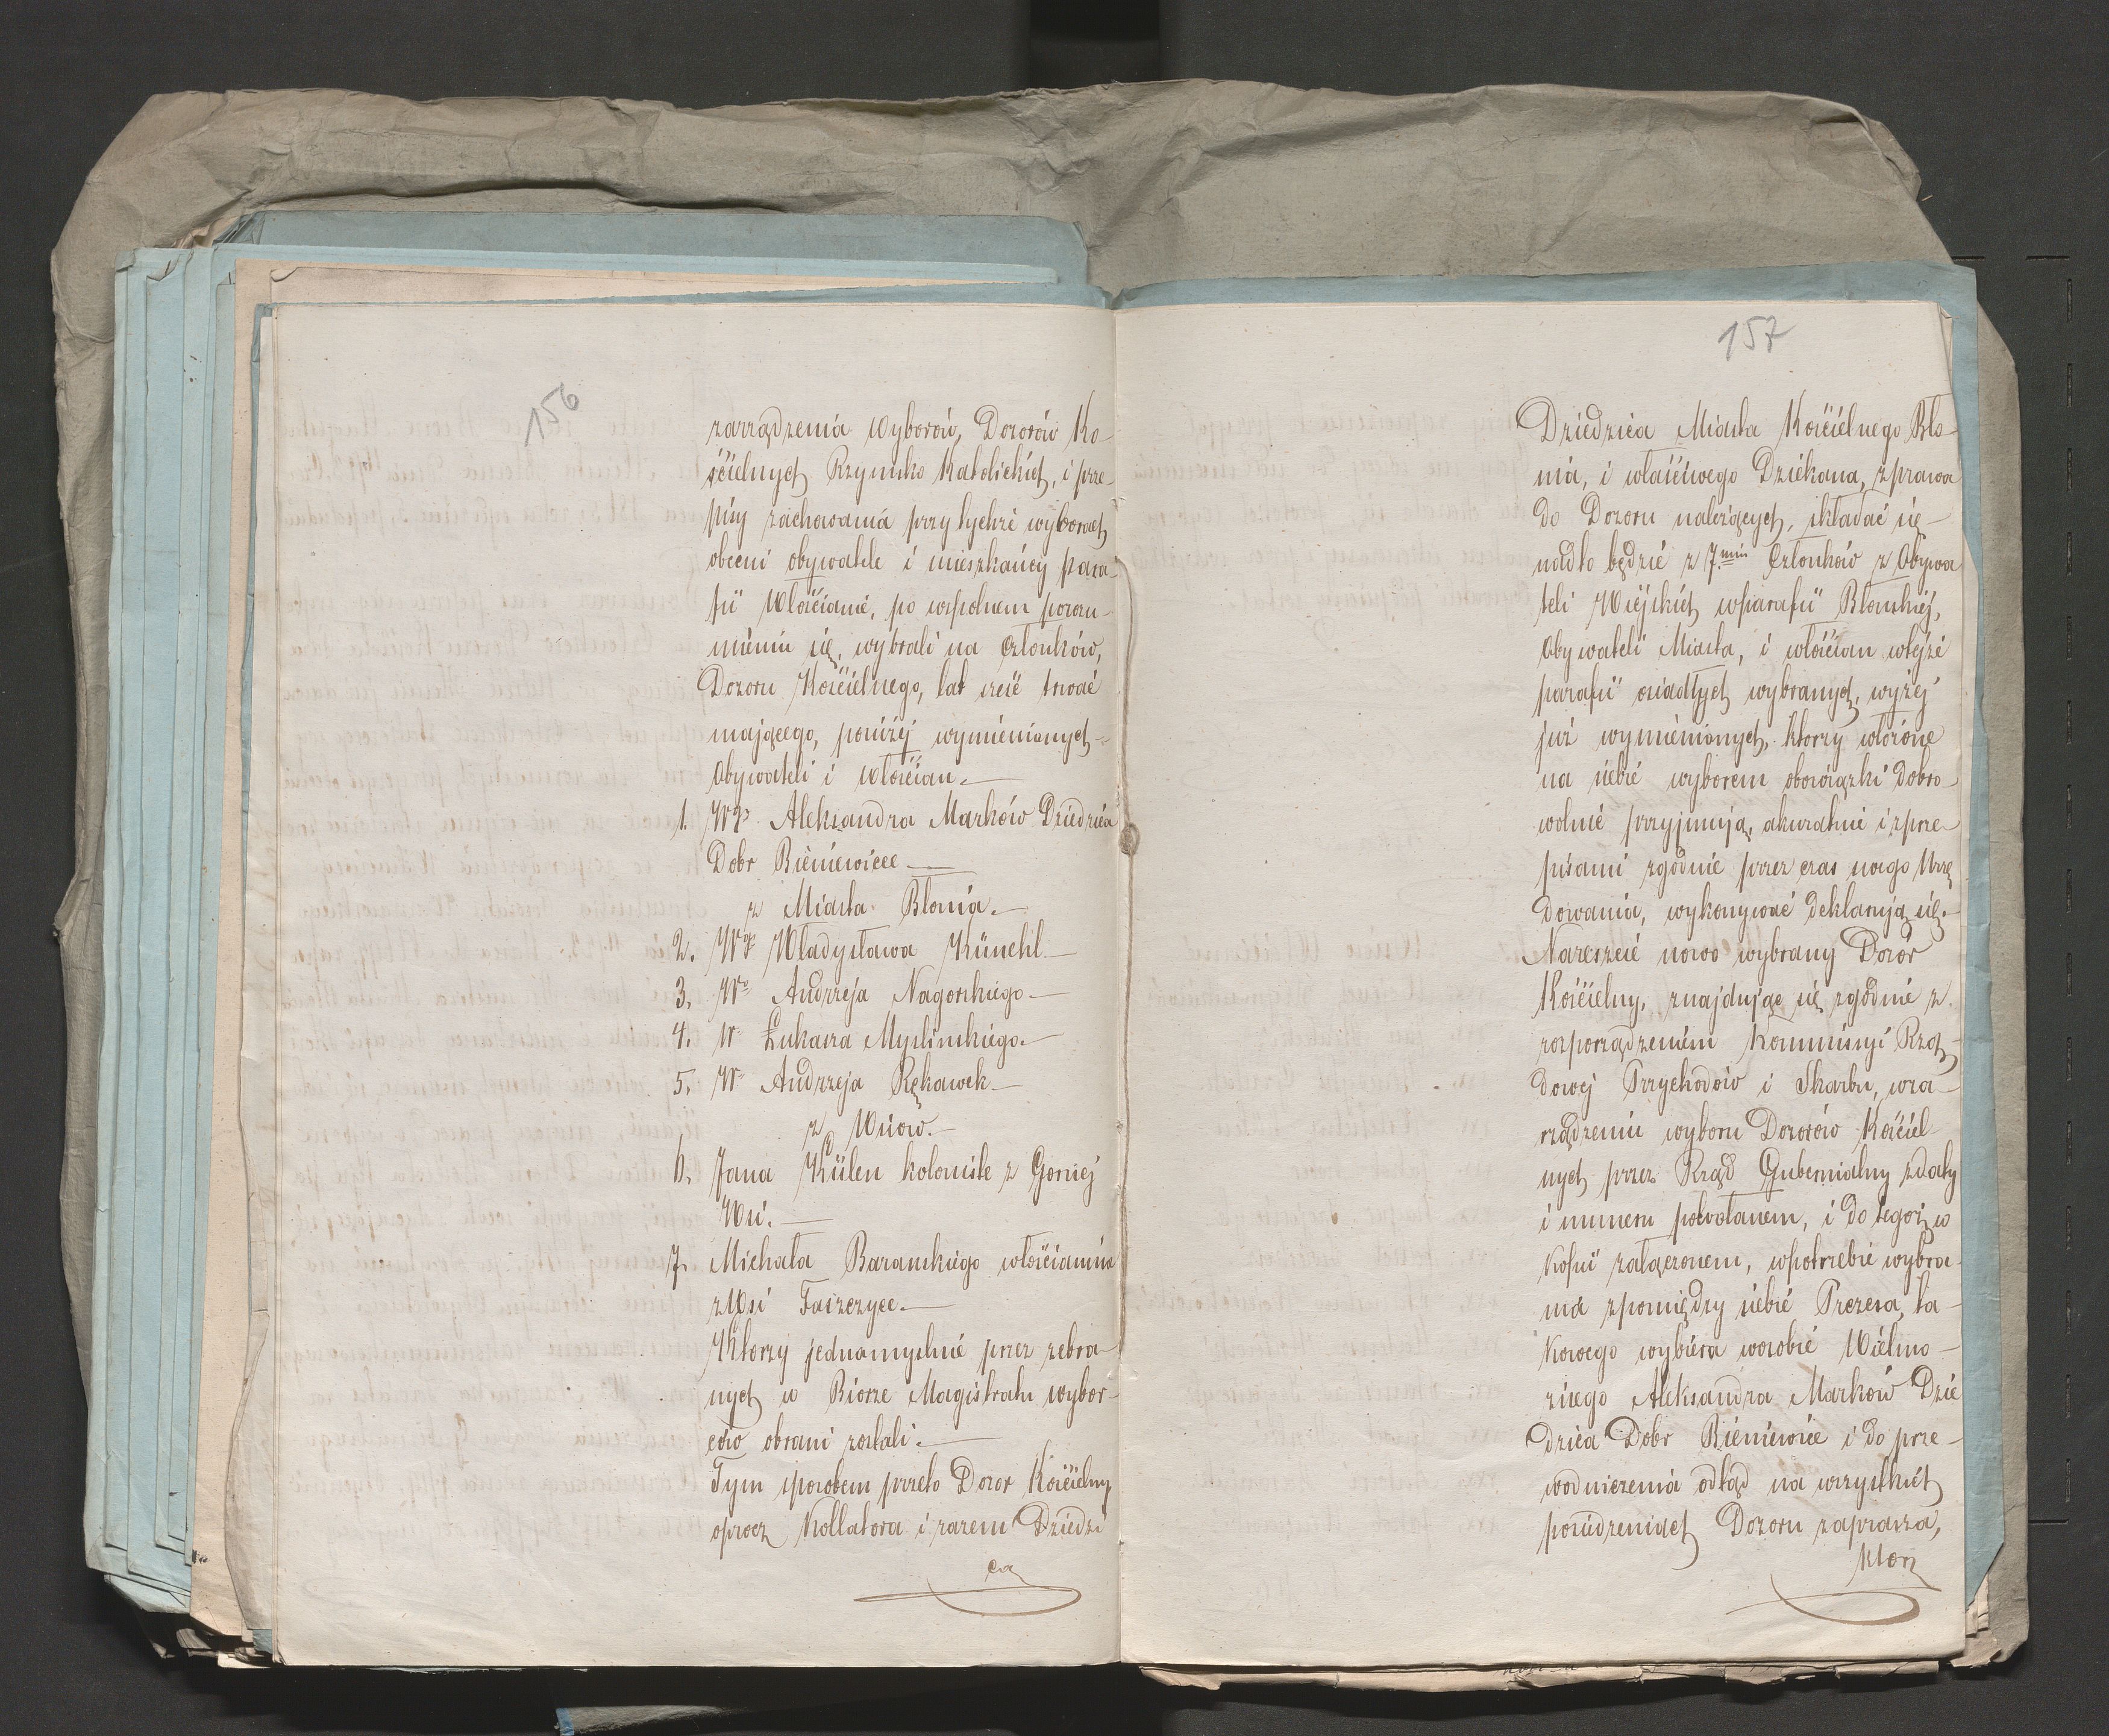 156
zarządzenia Wyborów, Dozorów Ko-
ścielnych Rzymsko Katolickich, i prze-
pisy zachowania przy tychże wyborach
obecni obywatele i mieszkańcy para-
fii Włościanie, po wspolnem porozu-
mieniu się, wybrali na Członków,
Dozoru Kościelnego, lat sześć trwać
mającego, poniżej wymienionych
Obywateli i Włościan.—
1. WP. Aleksandra Marków Dziedzica
Dobr Bieniewice—
z Miasta Błonia.—
2. WP Władysława Künehl—
3. Wo Andrzeja Nagorskiego—
4. W Łukasza Myslinskiego.—
5. W Andrzeja Rękawek—
z Wsiow.—
6. Jana Külen kolonistę z Gorniej
Wsi.—
7. Michała Baranskiego włościanina
z Wsi Faszczyce.—
Którzy jednomyslnie przez zebra-
nych w Biorze Magistratu wybor-
ców obrani zostali.—
Tym sposobem przeto Dozor Kościelny
oprocz Kollatora i razem Dziedzi
ca
157
Dziedzica Miasta Kościelnego Bło-
nia, i właściwego Dziekana, z prawa
do Dozoru należących, składać się—
nadto będzie z 7miu Członków z Obywa
teli Wiejskich w parafii Błonskiej,
Obywateli Miasta, i włościan w tejże
parafii osiadłych wybranych, wyżej
już wymienionych, ktorzy włożone
na siebie wyborem obowiązki dobro-
wolnie przyjmują, akuratnie i z prze-
pisami zgodnie przez czas swego Urzę
dowania, wykonywać deklarują się.—
Nareszcie nowo wybrany Dozór
Kościelny, znajdując się zgodnie z
rozporządzeniem Kommissyi Rzą-
dowej Przychodów i Skarbu, w za-
rządzeniu wyboru Dozorów Kościel
nych przez Rząd Gubernialny z daty
i numeru powołanem, i do tegoż w
Kopii załączonem, w potrzebie wybra-
nia z pomiędzy siebie Prezesa, ta-
kowego wybiera w osobie Wielmo-
żnego Aleksandra Marków Dzie
dzica Dobr Bieniewice i do prze-
wodniczenia odtąd na wszystkich
posiedzeniach Dozoru zaprasza,
ktorz